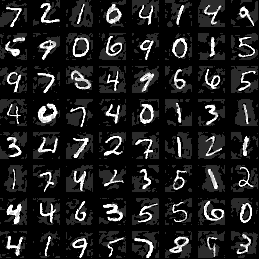 7 2 1 0 4 1 4 9
5 9 0 6 9 0 1 5
9 7 8 4 9 6 6 5
4 0 7 4 0 1 3 1
3 4 7 2 7 1 2 1
1 7 4 2 3 5 1 2
4 4 6 3 5 5 6 0
4 1 9 5 7 8 9 3